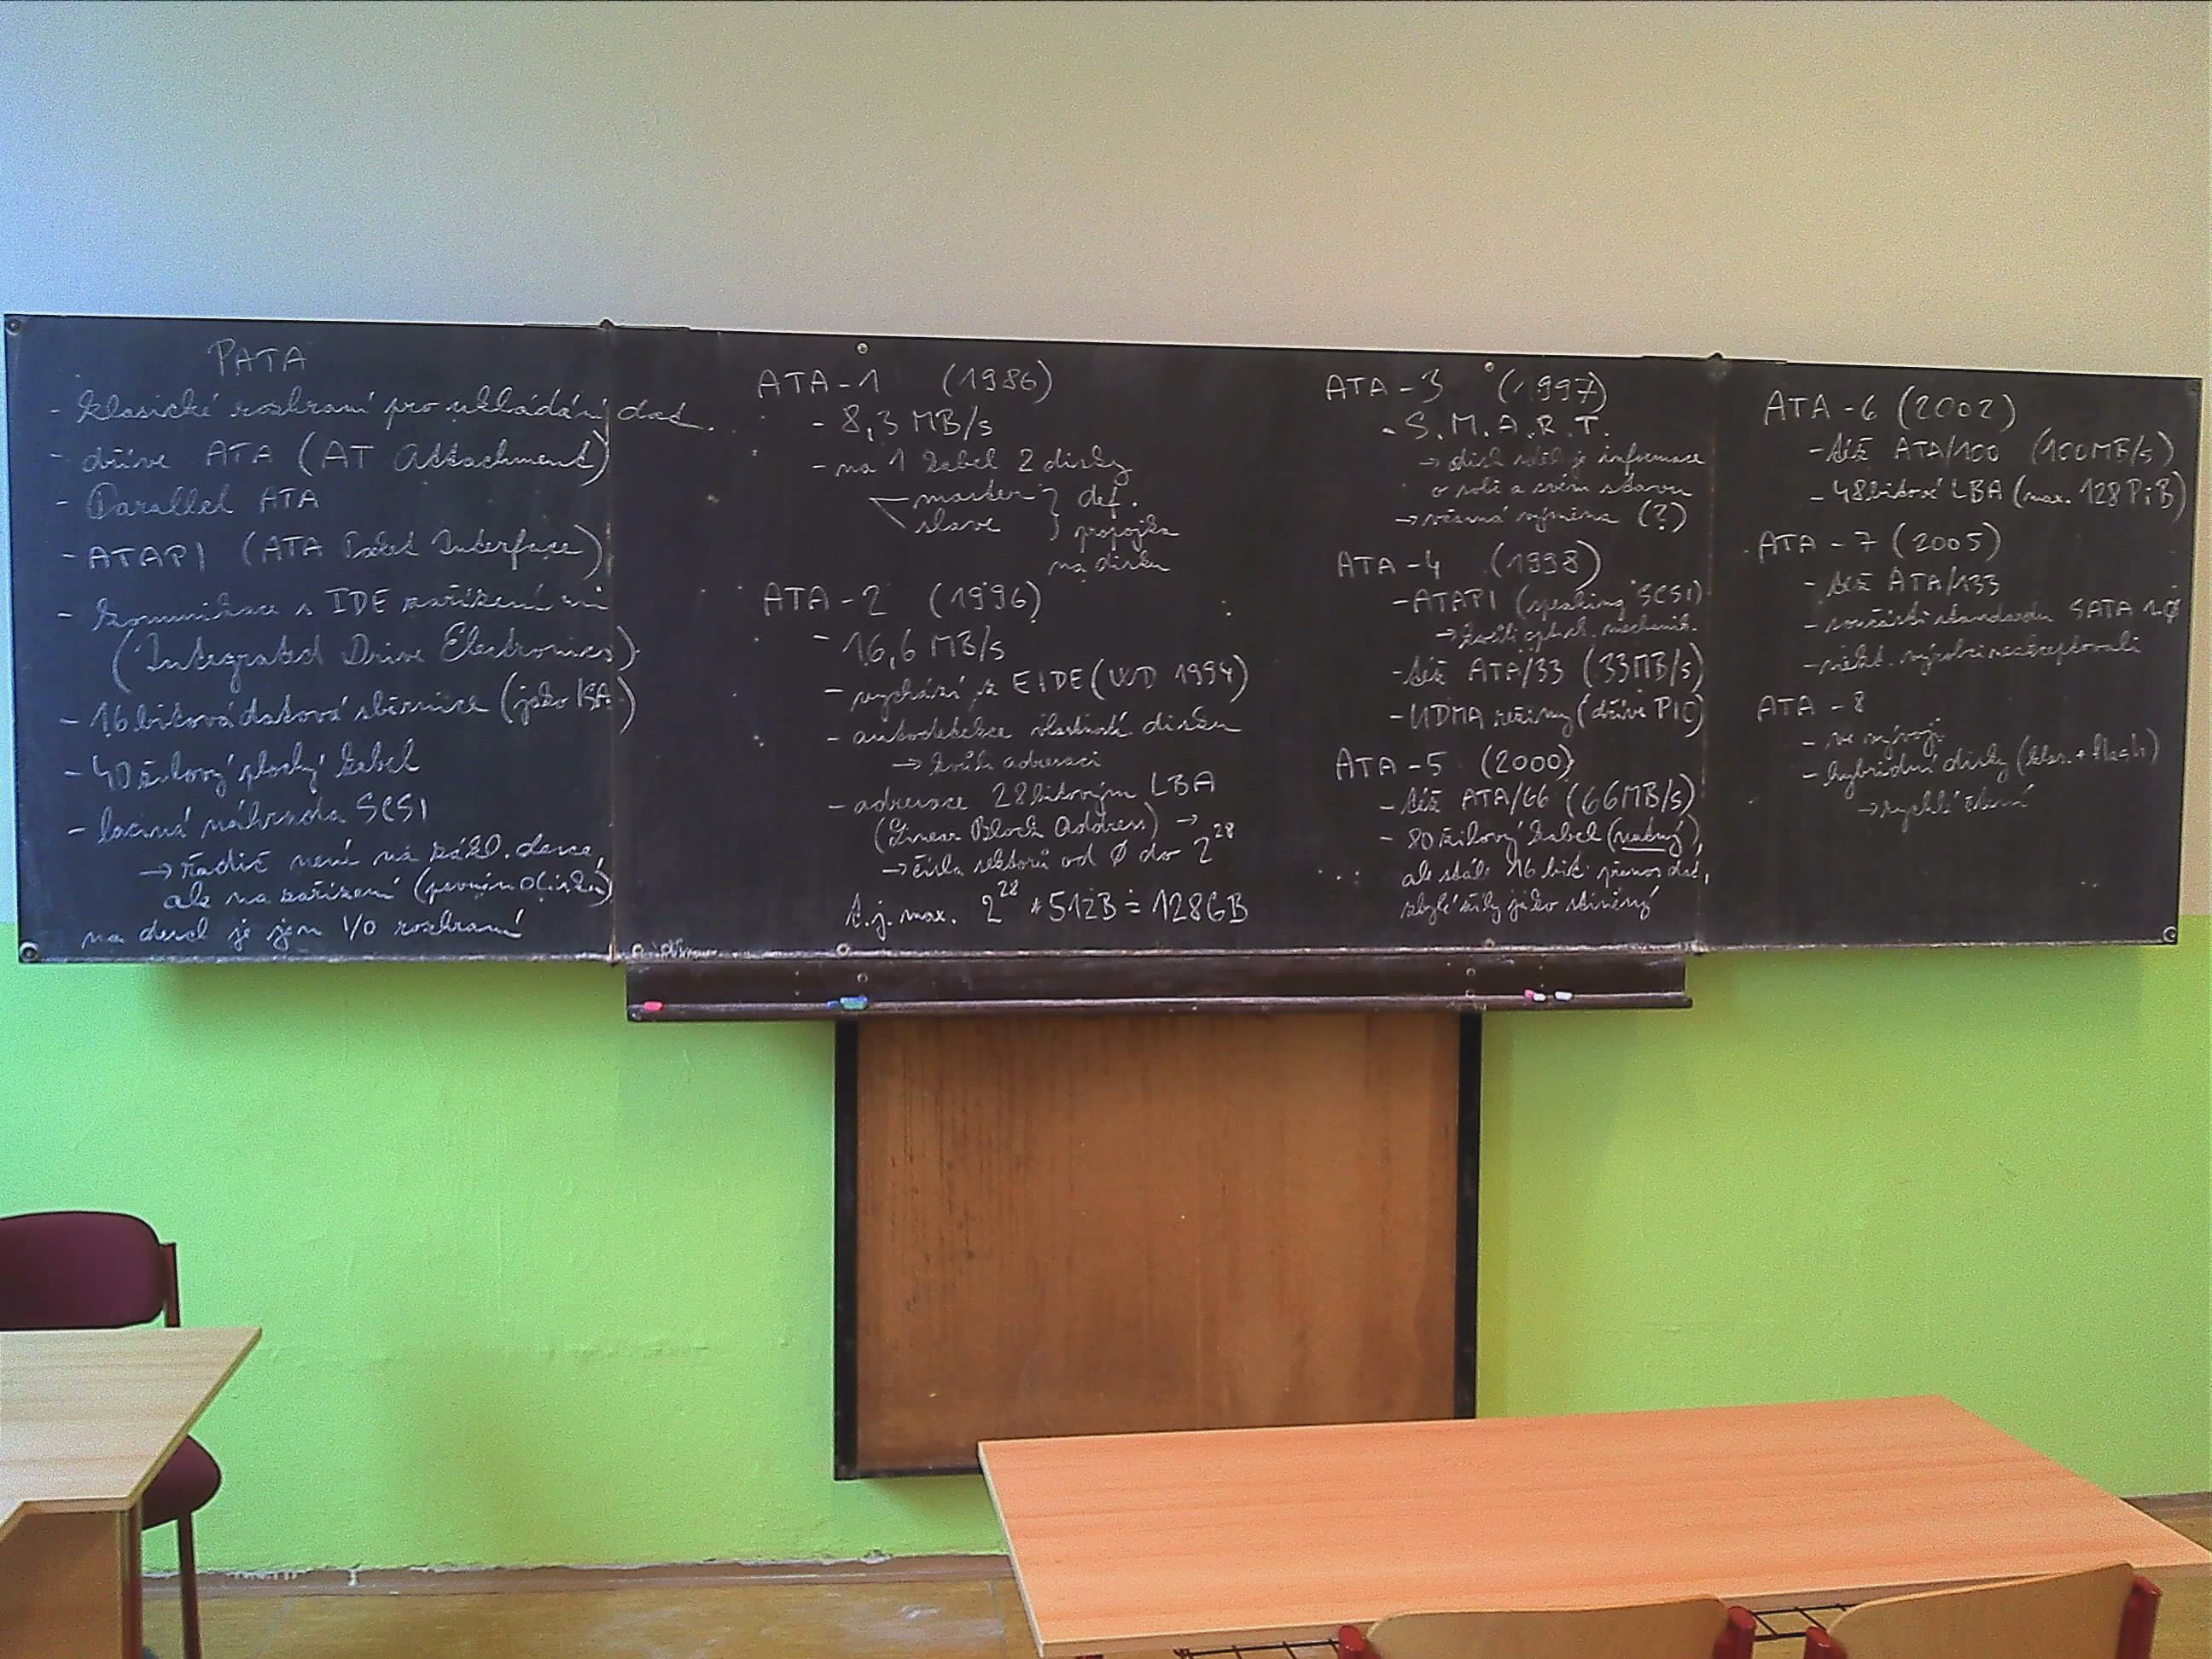 PATA
- klasické rozhraní pro ukládání dat.
- dříve ATA (AT Attachment)
- Parallel ATA
- ATAPI (ATA Paket Interface)
- komunikace s IDE zařízeními
(Integrated Drive Electronics)
- 16bitová datová sběrnice (jako ISA)
- 40žilový plochý kabel
- laciná náhrada SCSI
→ řadič není na zákl. desce,
ale na zařízení (pevném disku)
na desce je jen I/O rozhraní
ATA-1 (1986)
- 8,3 MB/s
- na 1 kabel 2 disky
master } def.
slave } propojka
na disku
ATA-2 (1996)
- 16,6 MB/s
- vychází z EIDE (WD 1994)
- autodetekce vlastností disku
→ kvůli adresaci
- adresace 28bitovým LBA
(Linear Block Address) →
→ čísla sektorů od 0 do 2^28
t.j. max. 2^28 * 512B ≐ 128GB
ATA-3 (1997)
- S.M.A.R.T.
→ disk sděluje informace
o sobě a svém stavu
→ včasná výměna (?)
ATA-4 (1998)
- ATAPI (speaking SCSI)
→ kvůli optick. mechanik.
- též ATA/33 (33MB/s)
- UDMA režimy (dříve PIO)
ATA-5 (2000)
- též ATA/66 (66MB/s)
- 80žilový kabel (nutný),
ale stále 16 bit. přenos dat,
zbylé žíly jako stínění
ATA-6 (2002)
- též ATA/100 (100MB/s)
- 48bitové LBA (max. 128PiB)
ATA-7 (2005)
- též ATA/133
- součástí standardu SATA 1.0
- někt. výrobci neakceptovali
ATA-8
- ve vývoji
- hybridní disky (klas. + flash)
→ rychlé čtení